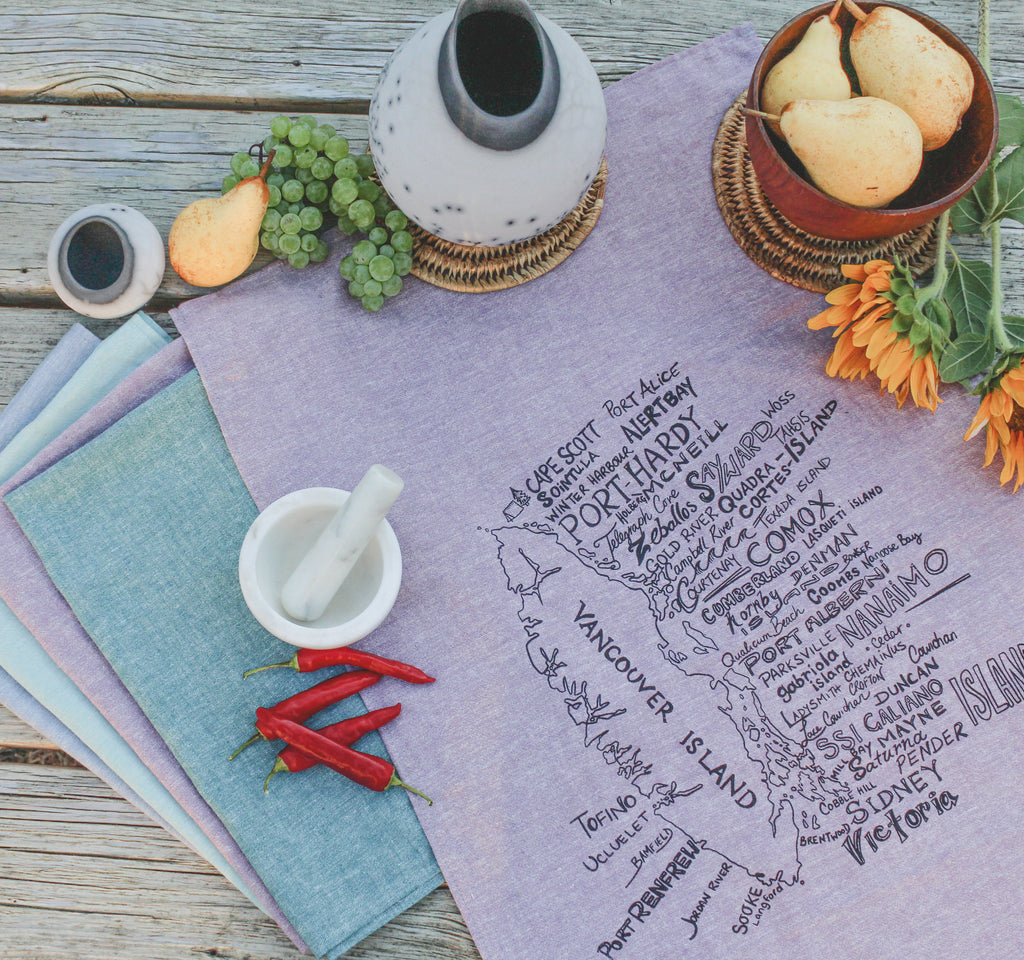 CAPE SCOTT
SOINTULLA
WINTER HARBOUR
PORT ALICE
ALERT BAY
PORT HARDY
HOLBERG
MCNEILL
Telegraph Cove
Zeballos
SAYWARD
WOSS
TAHSIS
GOLD RIVER
QUADRA - ISLAND
Campbell River
CORTES -
TEXADA ISLAND
COURTENAY
COMOX
CUMBERLAND
LASQUETI ISLAND
Hornby
ISLAND
DENMAN
BOWSER
Qualicum Beach
Coombs
Nanoose Bay
PORT ALBERNI
PARKSVILLE
NANAIMO
gabriola
island
• Cedar •
LADYSMITH
CHEMAINUS
Cowichan
CROFTON
Lake Cowichan
DUNCAN
SSI
GALIANO
ISLAN
MILL BAY
MAYNE
Saturna
PENDER
COBBLE HILL
SIDNEY
BRENTWOOD
Victoria
VANCOUVER ISLAND
TOFINO
UCLUELET
BAMFIELD
PORT RENFREW
JORDAN RIVER
SOOKE
Langford